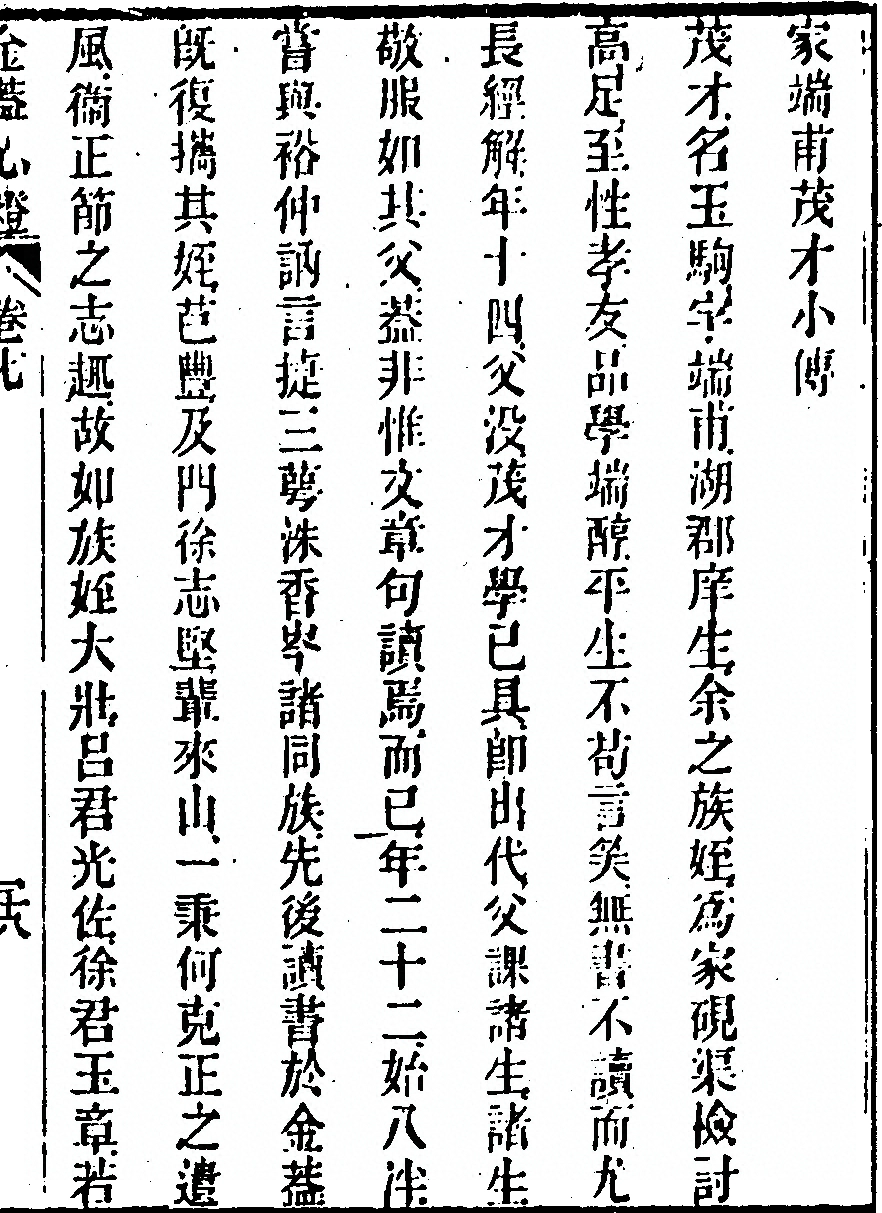 家端甫茂才小傳
茂才名玉駒字端甫湖郡庠生余之族姪為家硯渠檢討
高足至性孝友品學端醇平生不茍言笑無書不讀而尤
長經解年十四父没茂才學已具即出代父課諸生諸生
敬服如其父蓋非惟文章句讀焉而已年二十二始入泮
嘗與裕仲訥言捷三蕚洙香岑諸同族先後讀書於金蓋
既復攜其姪芑豐及門徐志堅輩來山一秉何克正之遺
風衞正節之志趣故如族姪大壯呂君光佐徐君玉章若
金蓋心燈 卷七